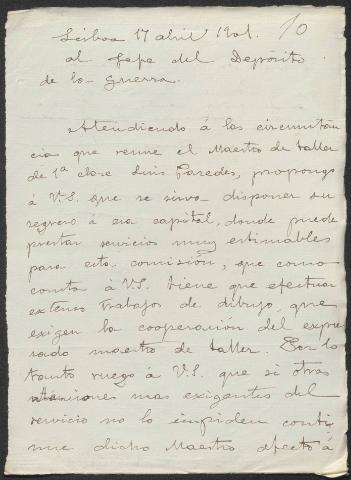 10
Lisboa 17 abril 1901.
al Jefe del Depósito
de la Guerra.
Atendiendo á las circunstan
cia que reune el Maestro de taller
de 1ª clase Luis Paredes, propongo
á V.S. que se sirva disponer su
regreso á esa capital, donde puede
prestar servicios muy estimables
para esta comisión, que como
consta á V.S. tiene que efectuar
extensos trabajos de dibujo, que
exigen la cooperación del expre
sado maestro de taller. Por lo
tanto ruego á V.S. que si otras
atenciones mas exigentes del
servicio no lo impiden conti
nue dicho Maestro afecto á